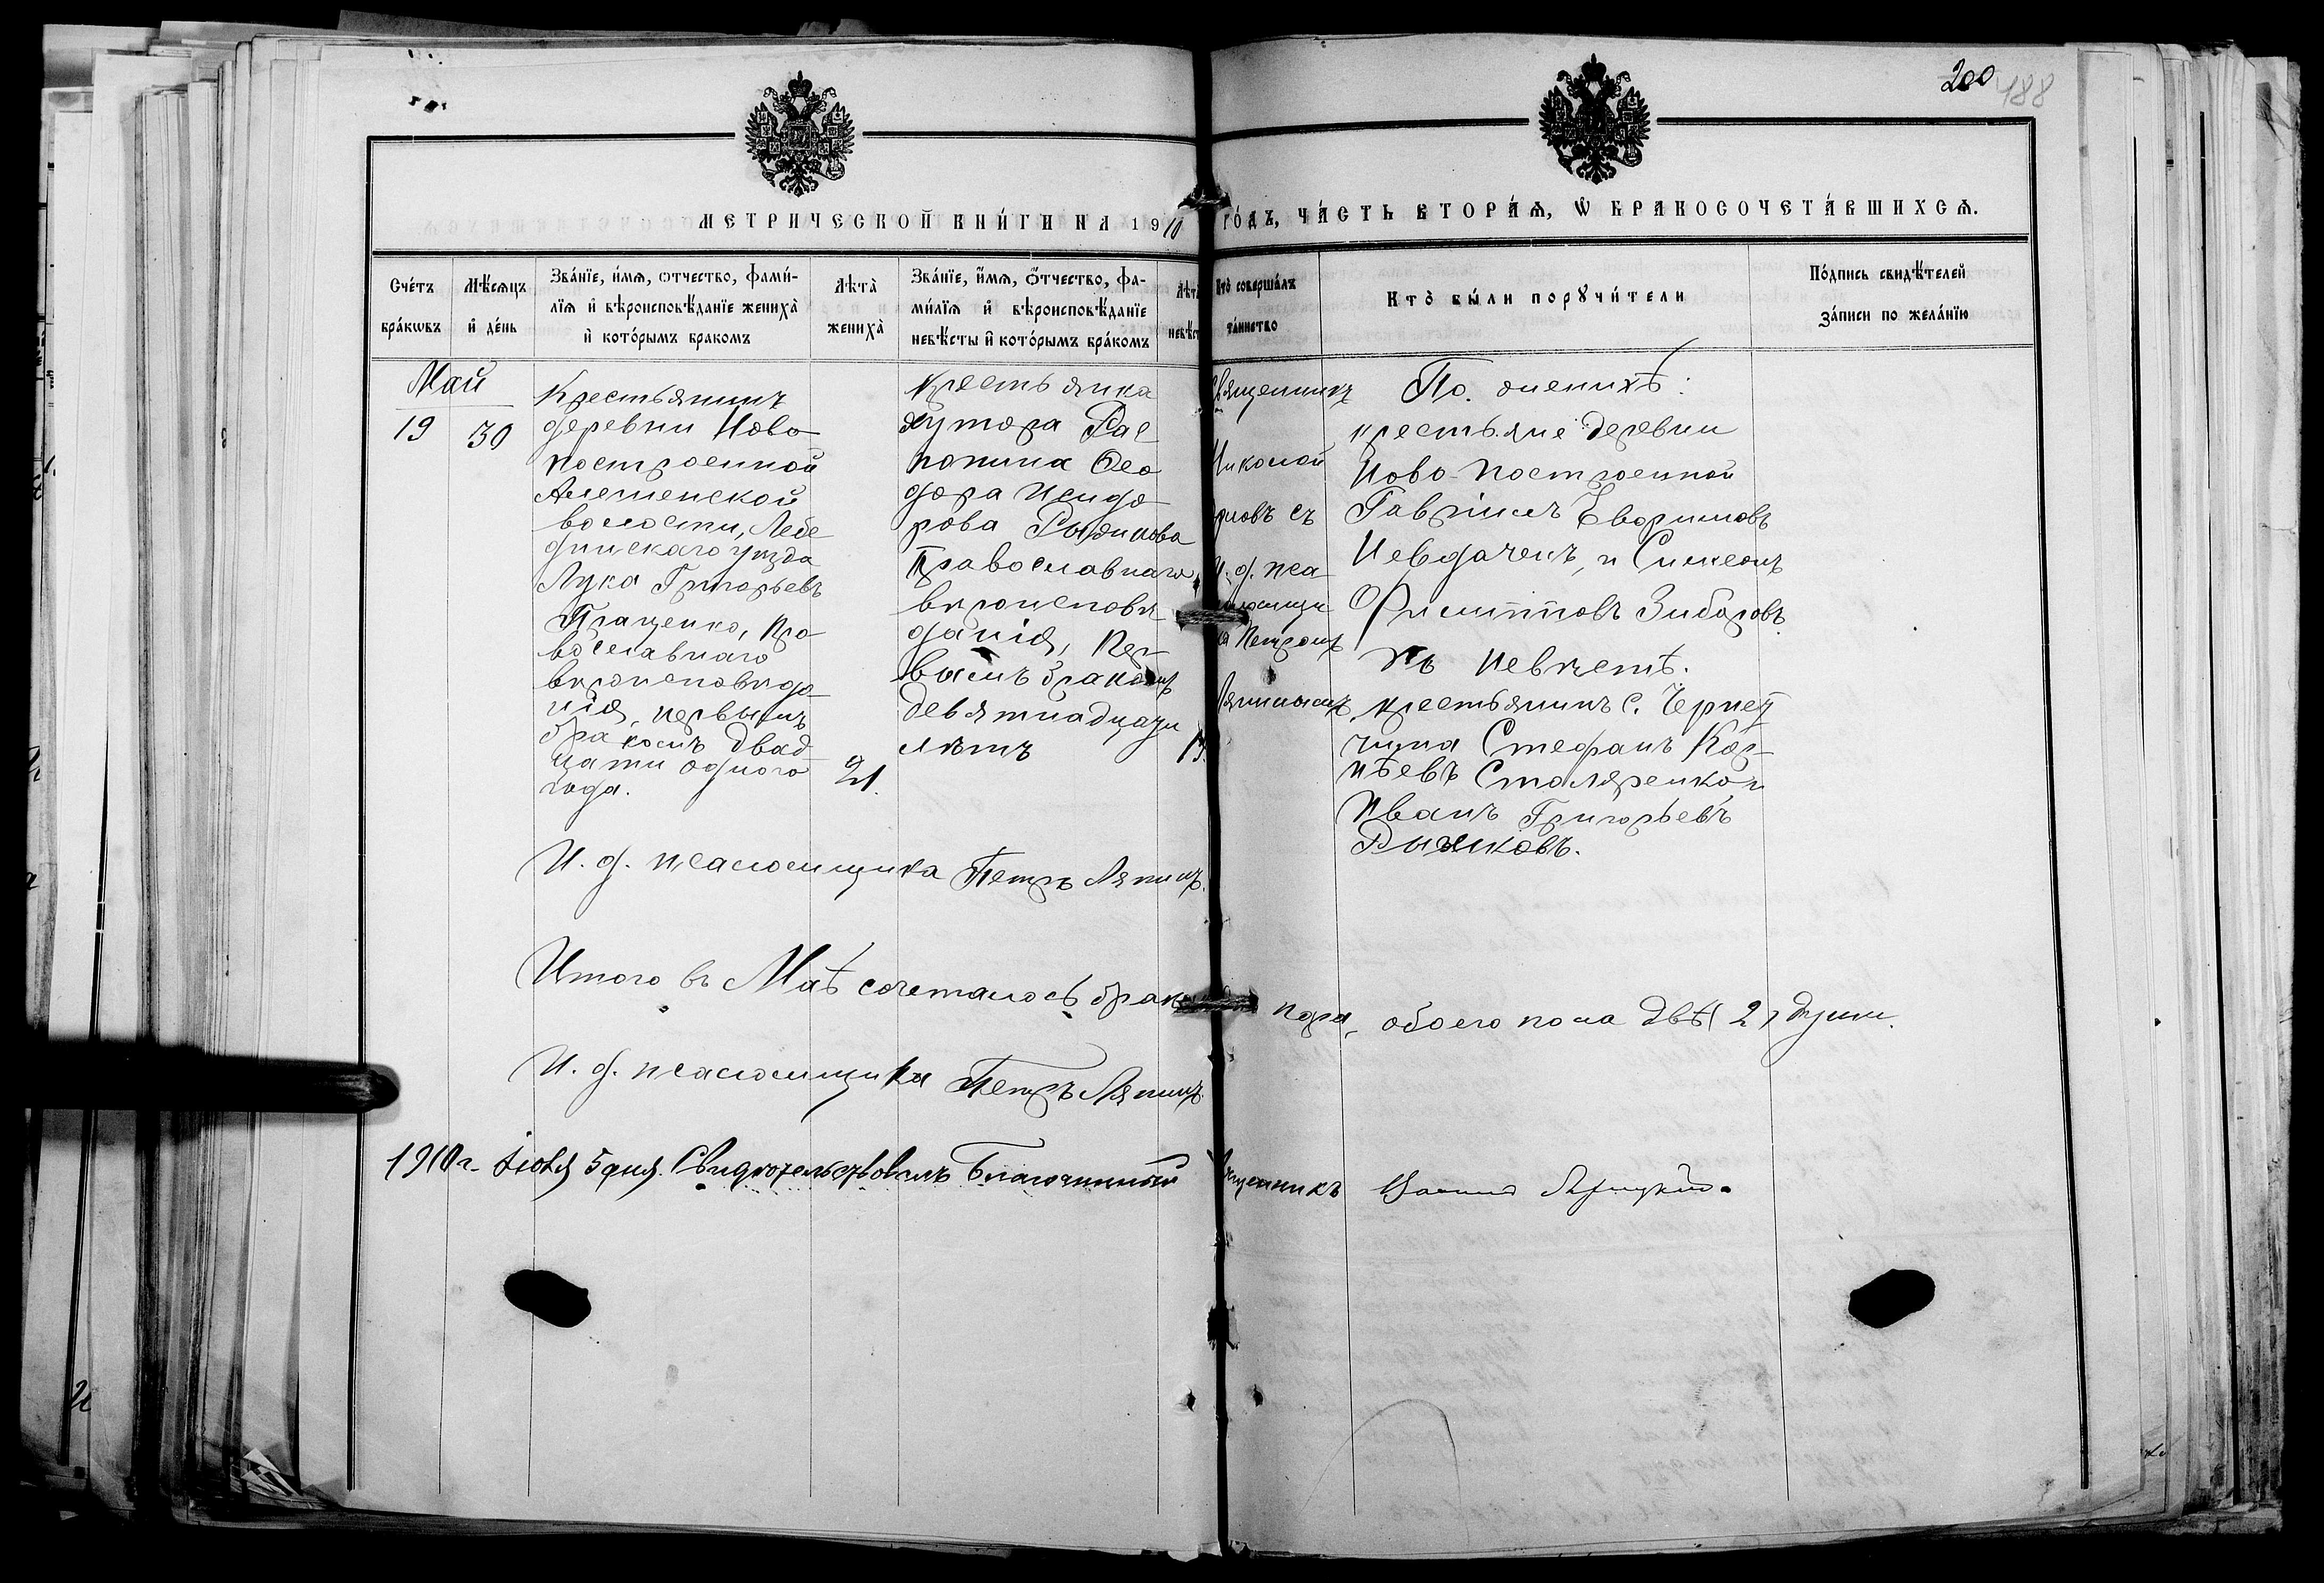 200
188
МЕТРИЧЕСКОЙ КНИ́ГИ НА 1910 ГО́ДЪ, ЧА́СТЬ ВТОРА́Ѧ, Ѡ БРАКОСОЧЕТА́ВШИХСѦ.
Сче́тъ
бра́кѡвъ
Мѣ́сѧцъ
и́ де́нь
Зва́нїе, и́мѧ, ѻтчество, фами́-
лїѧ и́ вѣроисповѣ́данїе жениха̀
и́ кото́рымъ бракомъ
Лѣта̀
жениха̀
Зва́нїе, и́мѧ, ѻ́тчество, фа-
ми́лїѧ и́ вѣроисповѣ́данїе
невѣ́сты и́ кото́рымъ бра́комъ
Лѣта
невѣст
Кто̀ соверша́лъ
та́инство
Кто̀ бы́ли порꙋчи́тели
По́дпись свидѣ́телей
за́писи по жела́нїю
Май
19
30
Крестьянинъ
деревни Ново-
построенной
волости, Лебе
динскаго уѣзда
Лука Григорьевъ
Пращенко, пра-
вославнаго
вѣроисповѣда-
нія, первымъ
бракомъ двад
цати одного
года.
21.
Крестьянка
хутора Рас
попина Ѳео
дора Исидо
рова Рыжкова
Православнаго
вѣроисповѣ
данія, пер-
вымъ бракомъ
девятнадцати
лѣтъ
19.
Священникъ
Николай
рловъ съ
И. д. пса
ломщи
ка Петромъ
Ляпинымъ
По женихѣ:
крестьяне деревни
Ново-построенной
Гавріилъ
и Симеонъ
Филипповъ Зибаровъ.
По невѣстѣ.
крестьянинъ с. Чернет
чина Стефанъ Кор-
нѣевъ Столяренко и
Иванъ Григорьевъ
Рыжковъ.
И. д. псаломщика Петръ Ляпинъ.
Итого въ Маѣ сочеталось бракомъ пара, обоего пола двѣ (2) души.
И. д. псаломщика Петръ Ляпинъ
1910 г. Іюня 5 дня. Свидѣтельствовалъ Благочинный Священникъ